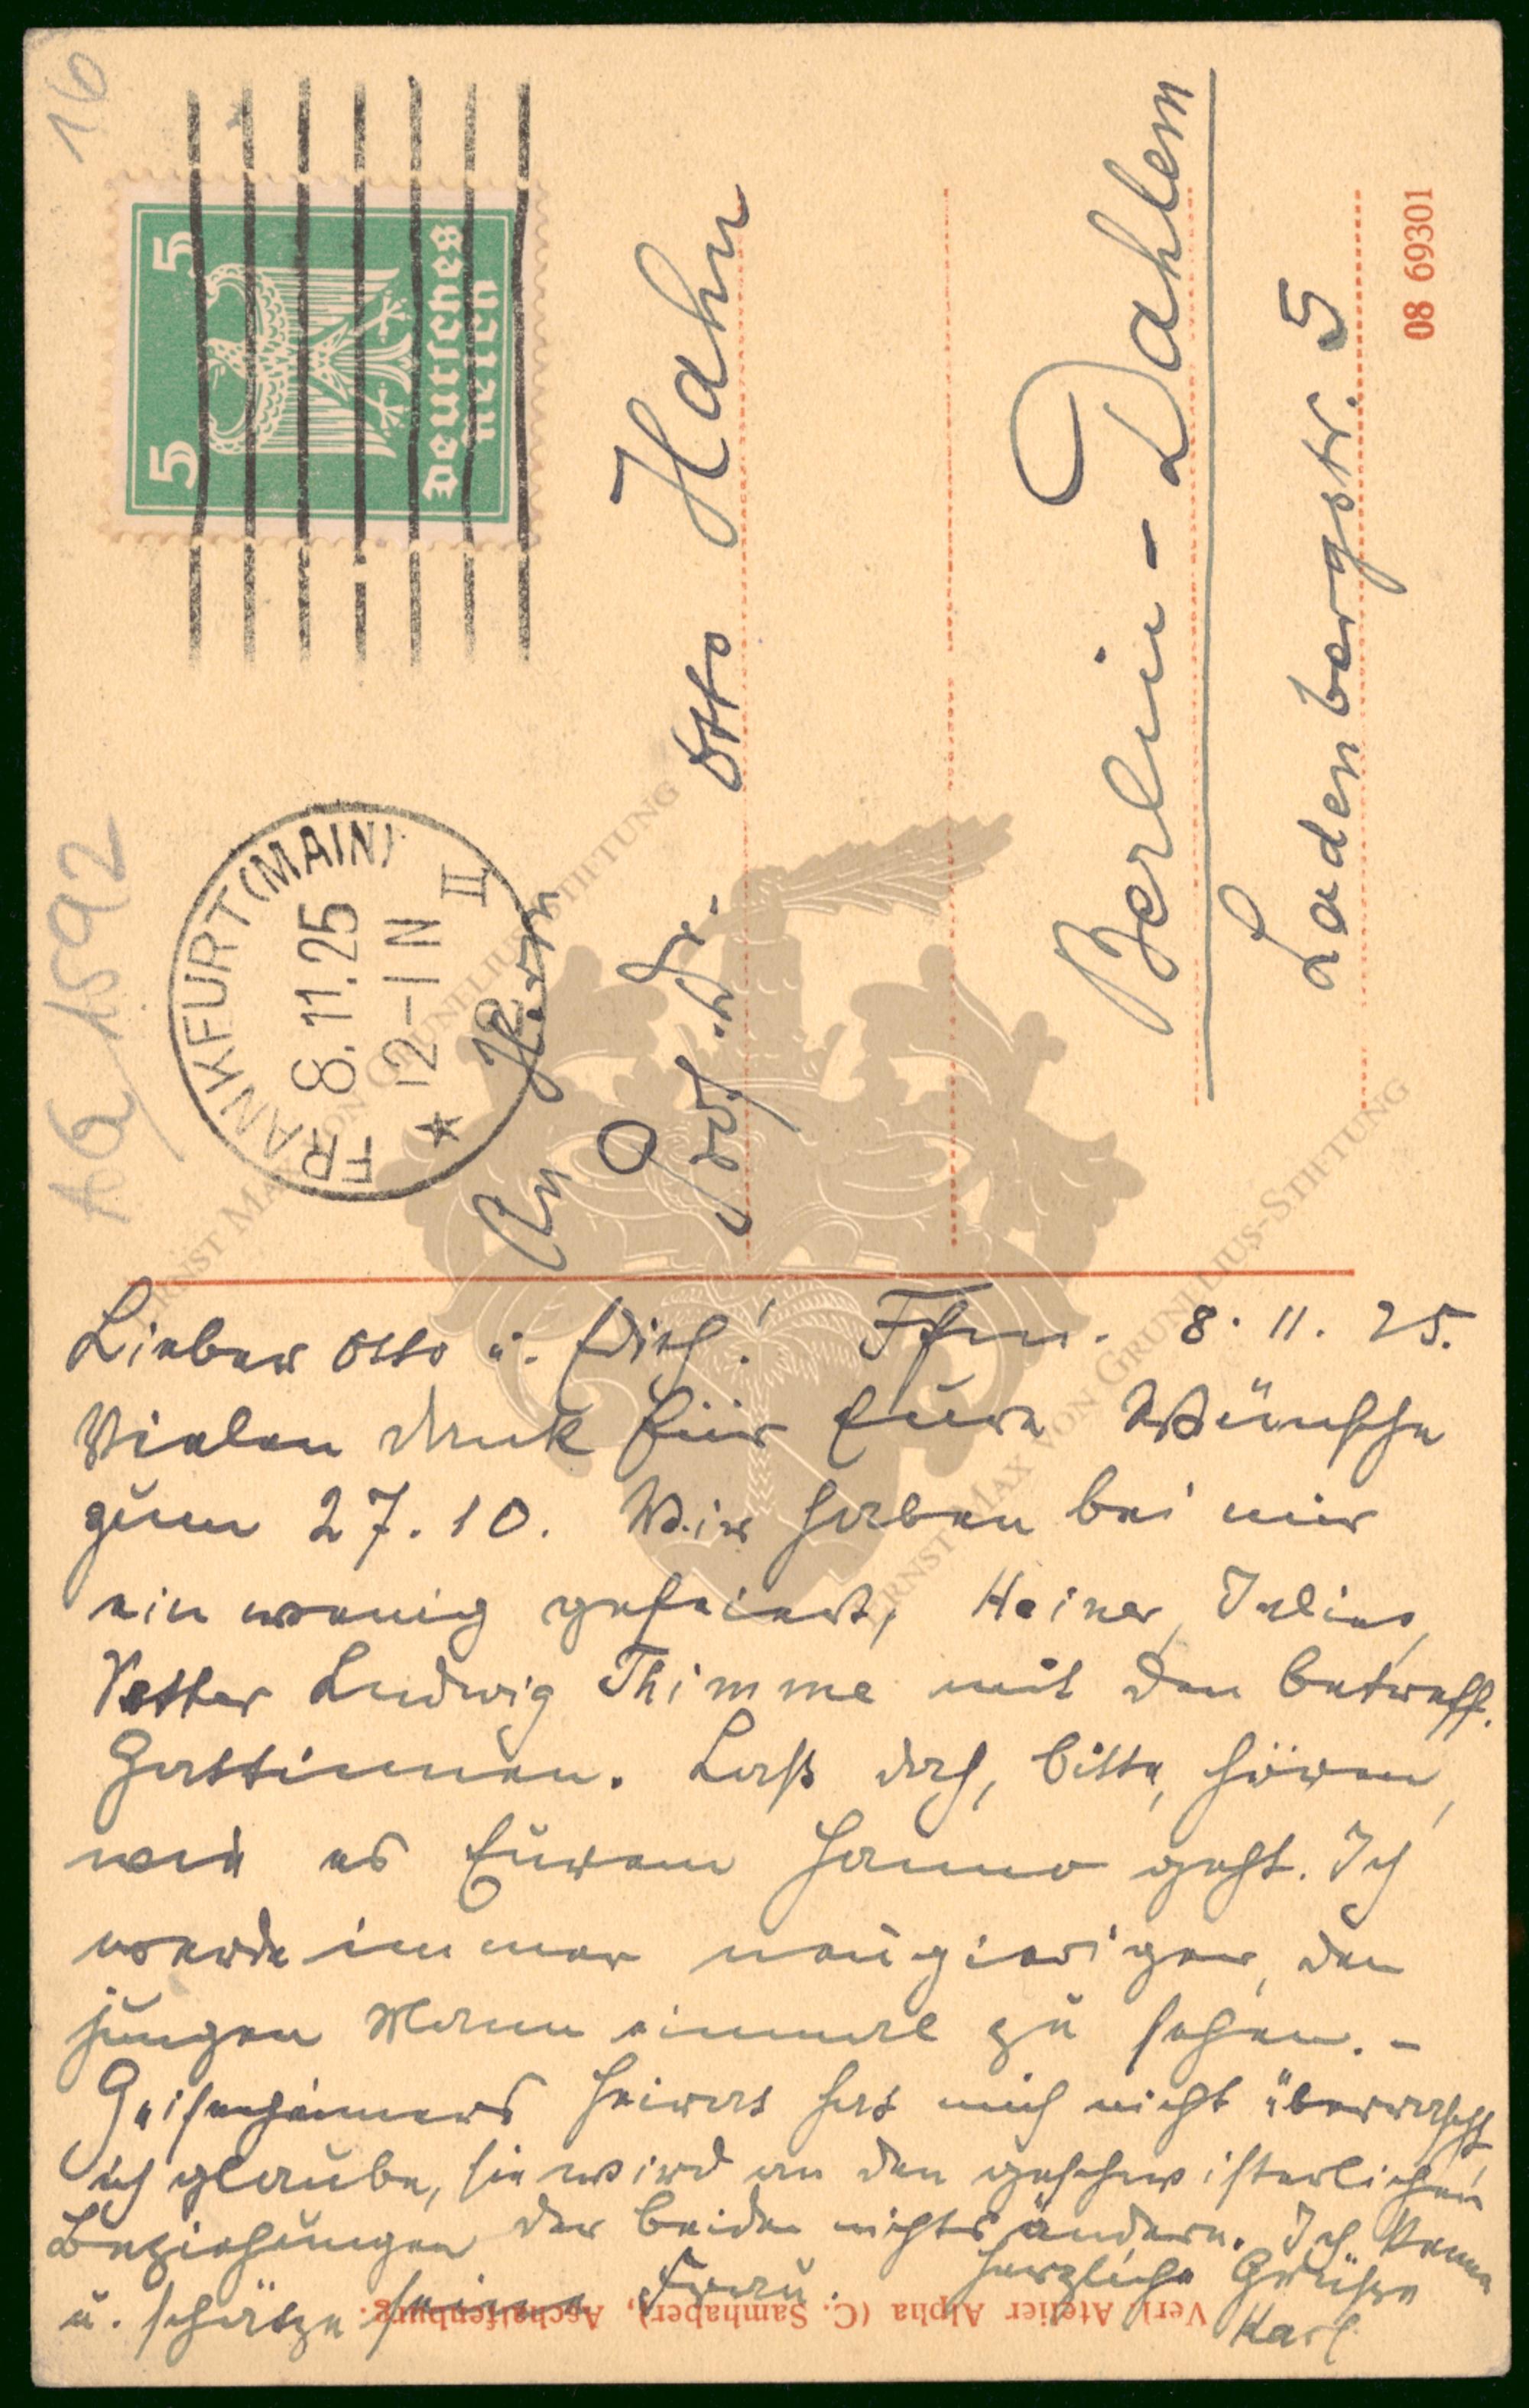 16
5 5
Deutsches
Reich
AQ 1592
FRANKFURT (MAIN)
8.11.25
12-1 N
II
An Herrn
Prof. Dr. Otto Hahn
Berlin-Dahlem
Ladenbergstr. 5
08 69301
Lieber Otto u. Edith! Ffm. 8.11.25.
Vielen Dank für Eure Wünsche
zum 27.10. Wir haben bei mir
ein wenig gefeiert, Heiner, Julius,
Vetter Ludwig Thimme mit den betreff.
Gattinnen. Laß doch, bitte, hören,
wie es Eurem Hanno geht. Ich
werde immer neugieriger, den
jungen Mann einmal zu sehen. –
Geisenheimers Heirat hat mich nicht überrascht,
ich glaube, sie wird an den geschwisterlichen
Beziehungen der beiden nichts ändern. Ich kenne
u. schätze seine Frau. Herzliche Grüße
Karl
Verl. Atelier Alpha (C. Samhaber), Aschaffenburg.
ERNST MAX VON GRUNELIUS-STIFTUNG
ERNST MAX VON GRUNELIUS-STIFTUNG